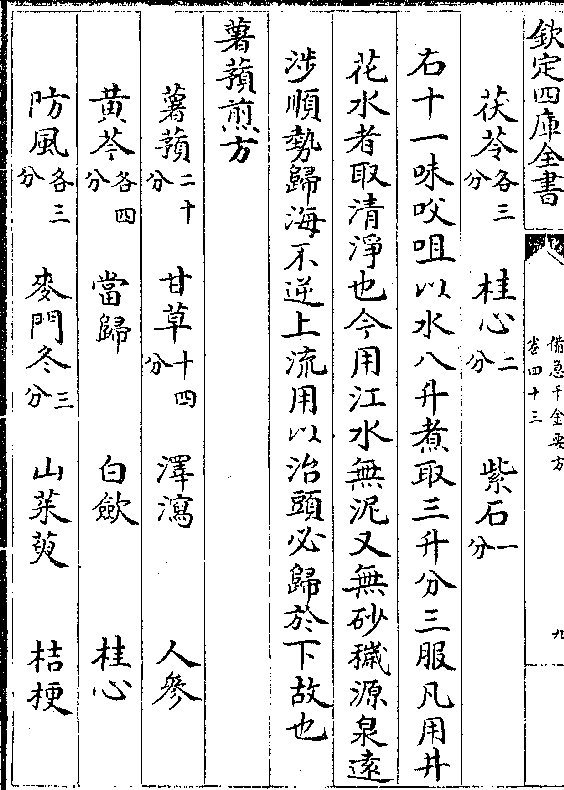 欽定四庫全書
備急千金要方
卷四十三
九
茯苓各三分 桂心二分 紫石一分
右十一味㕮咀以水八升煮取三升分三服凡用井
花水者取清淨也今用江水無泥又無砂穢源泉遠
涉順勢歸海不逆上流用以治頭必歸於下故也
薯蕷煎方
薯蕷二十分 甘草十四分 澤瀉 人參
黃芩各四分 當歸 白斂 桂心
防風各三分 麥門冬三分 山茱萸 桔梗